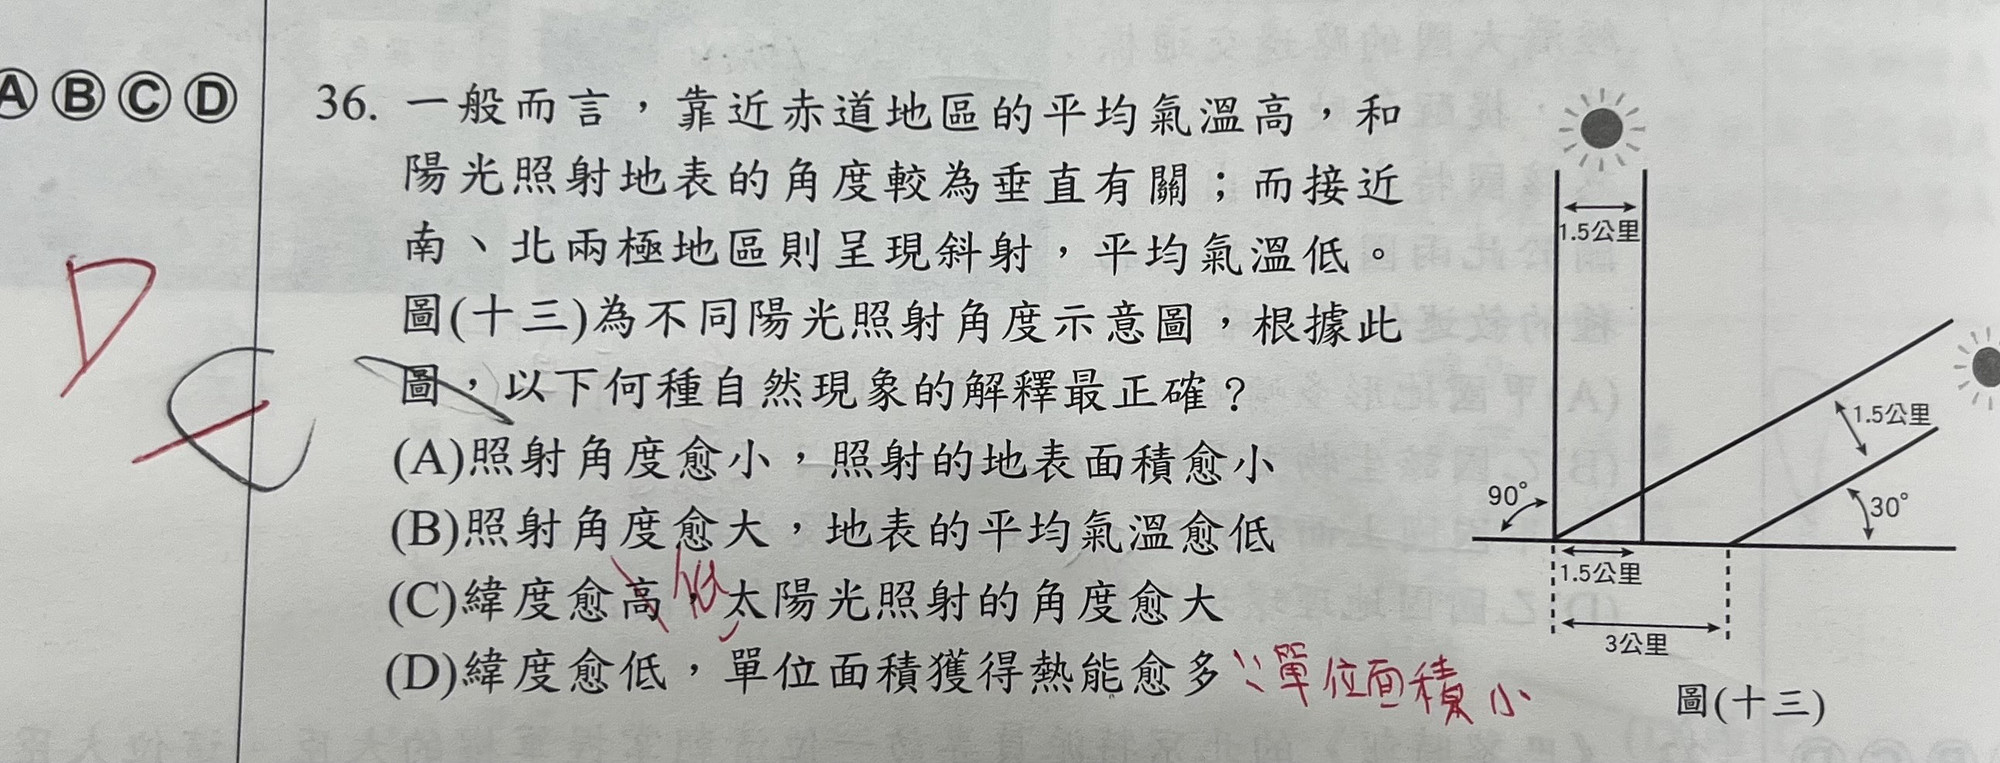 ⒶⒷⒸⒹ
36. 一般而言，靠近赤道地區的平均氣溫高，和
陽光照射地表的角度較為垂直有關；而接近
南、北兩極地區則呈現斜射，平均氣溫低。
圖(十三)為不同陽光照射角度示意圖，根據此
圖，以下何種自然現象的解釋最正確？
(A)照射角度愈小，照射的地表面積愈小
(B)照射角度愈大，地表的平均氣溫愈低
(C)緯度愈高，太陽光照射的角度愈大
低
(D)緯度愈低，單位面積獲得熱能愈多
∵單位面積小
D
C
1.5公里
1.5公里
90°
30°
1.5公里
3公里
圖(十三)